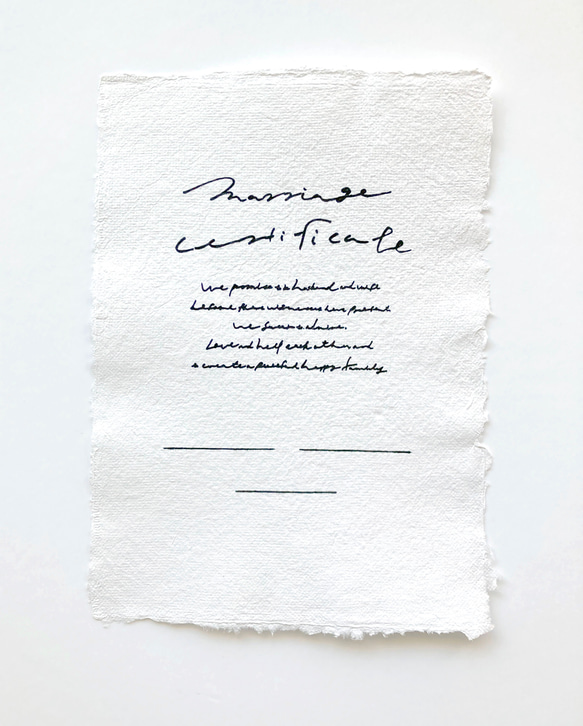 marriage
certificate
We promise as husband and wife
before the witnesses here present.
We swear
Love and help each other and
create a peaceful happy family